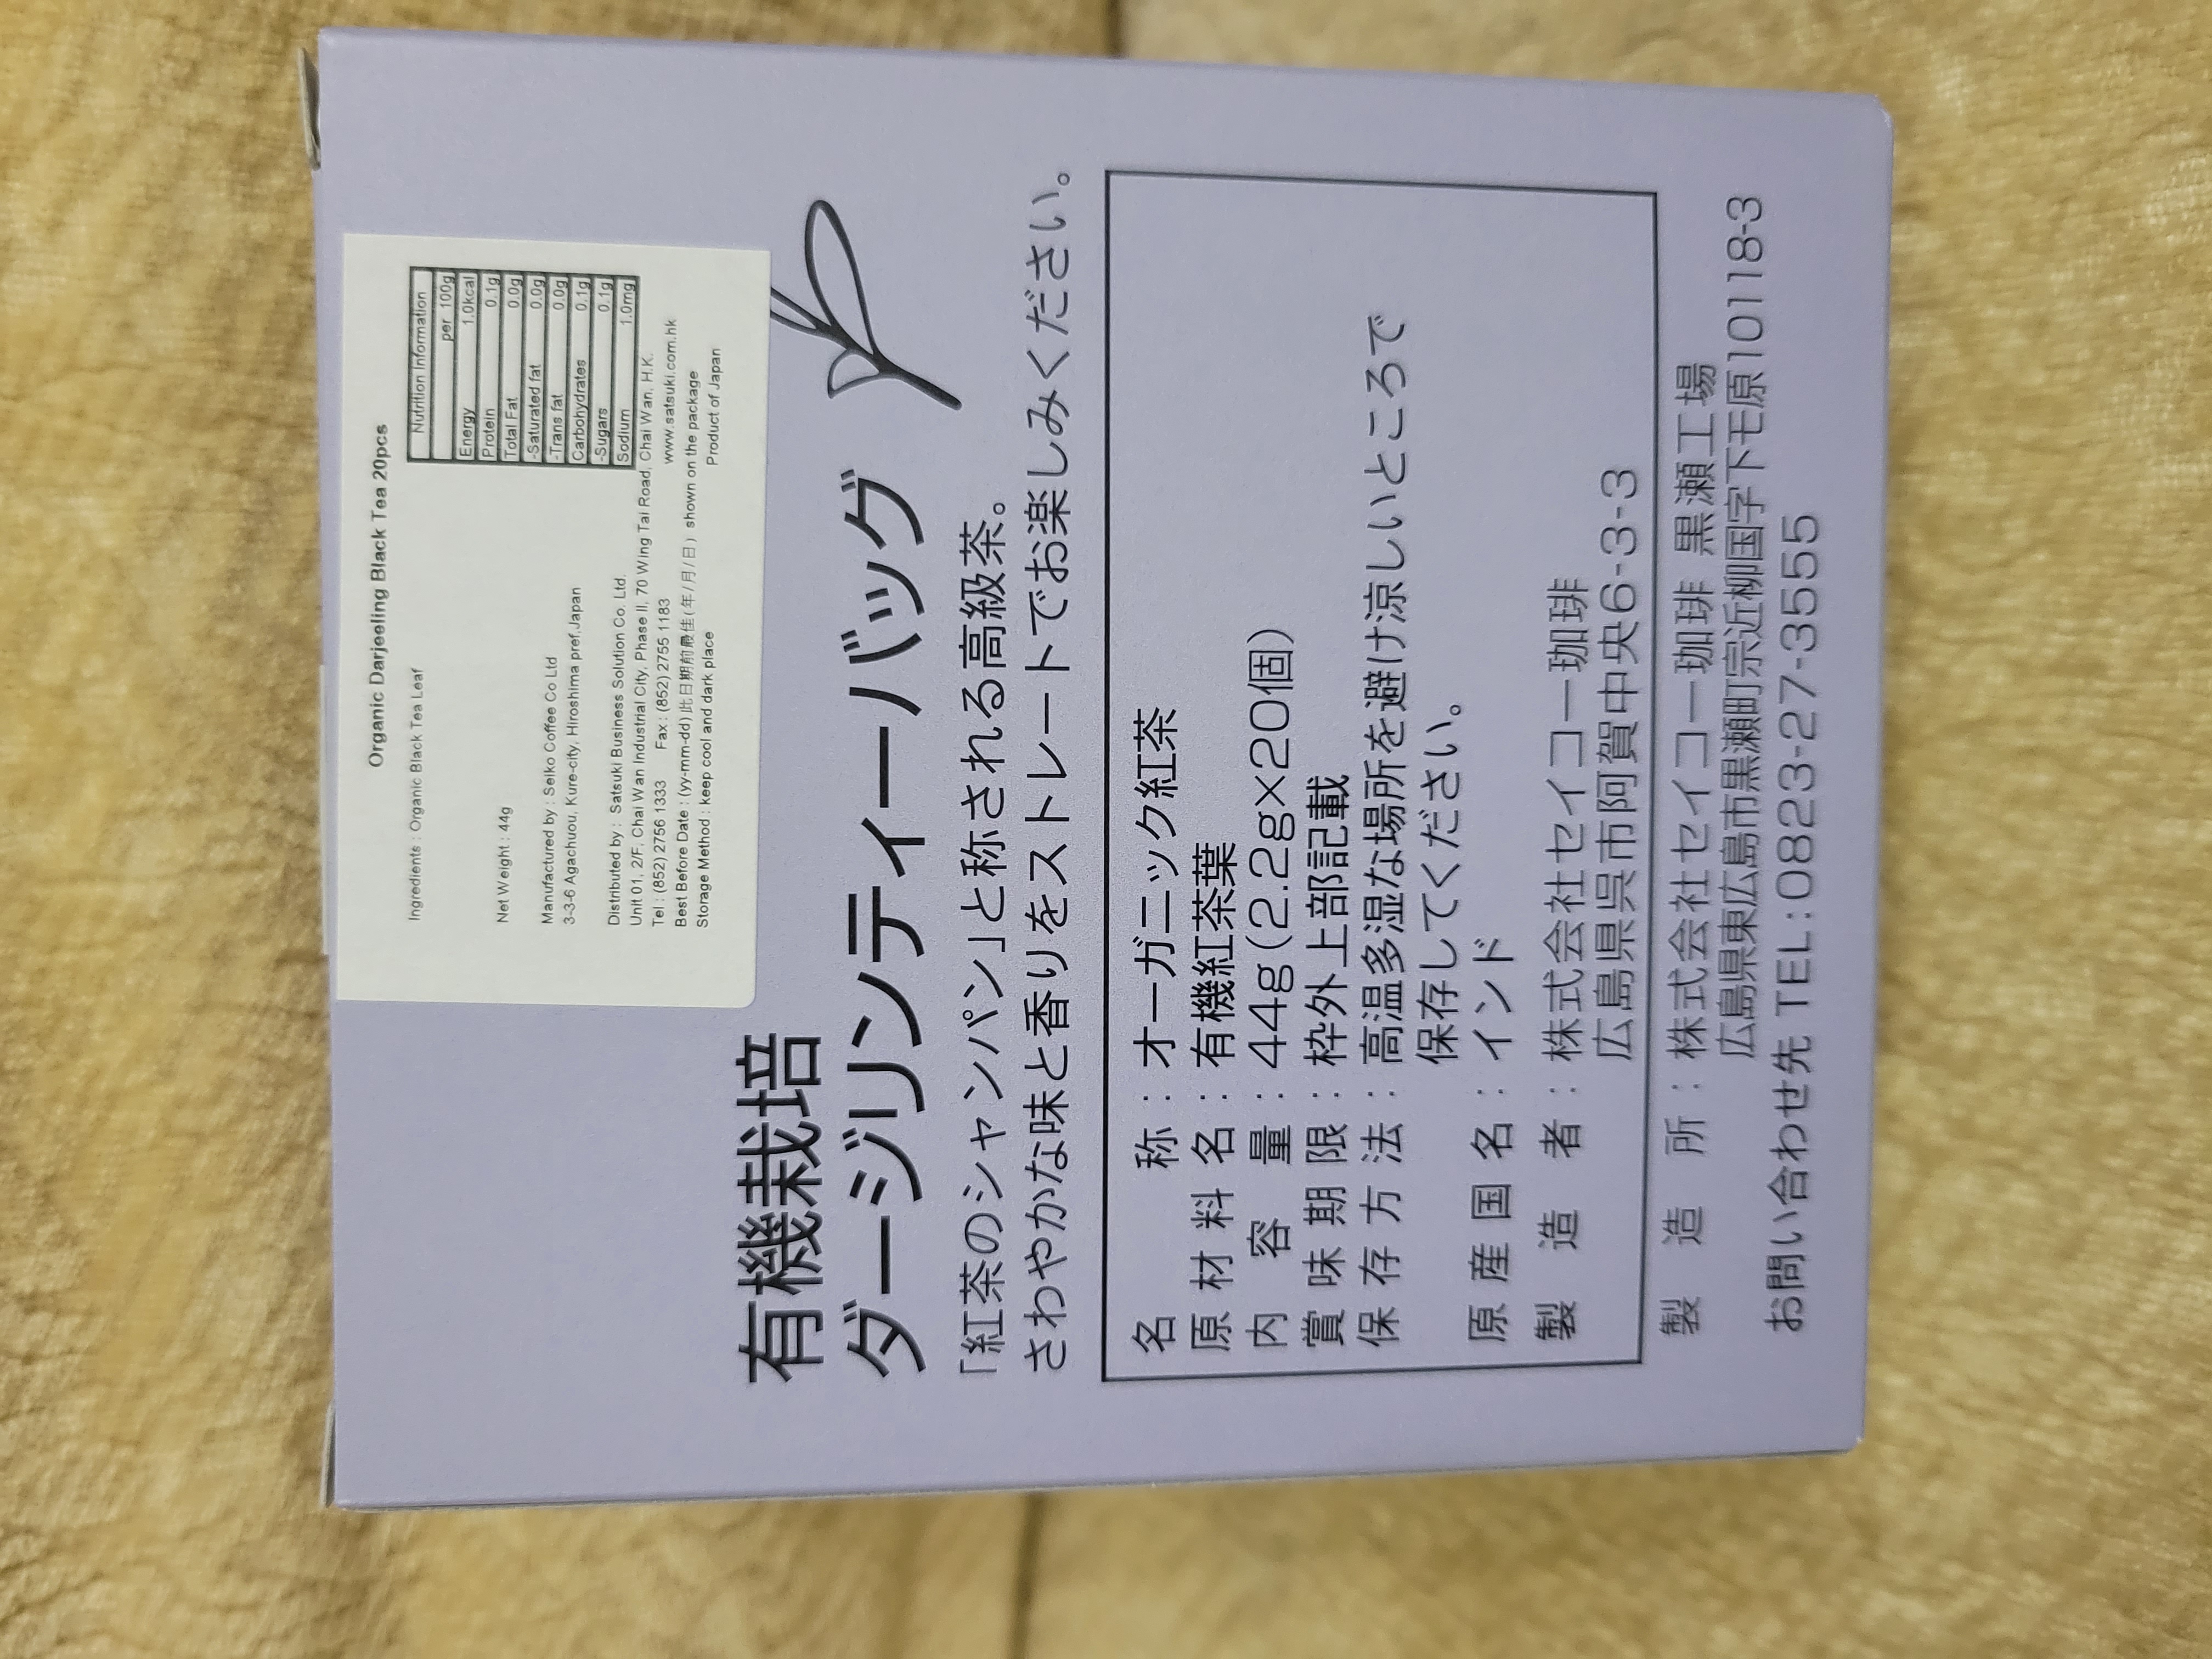 Organic Darjeeling Black Tea 20pcs
Ingredients : Organic Black Tea Leaf
Nutrition Information
per 100g
Energy 1.0kcal
Protein 0.1g
Total Fat 0.0g
-Saturated fat 0.0g
-Trans fat 0.0g
Carbohydrates 0.1g
-Sugars 0.1g
Sodium 1.0mg
Net Weight : 44g
Manufactured by : Seiko Coffee Co Ltd
3-3-6 Agachuou, Kure-city, Hiroshima pref,Japan
Distributed by : Satsuki Business Solution Co. Ltd.
Unit 01, 2/F, Chai Wan Industrial City, Phase II, 70 Wing Tai Road, Chai Wan, H.K.
Tel : (852) 2756 1333 Fax : (852) 2755 1183 www.satsuki.com.hk
Best Before Date : (yy-mm-dd) 此日期前最佳(年/月/日) shown on the package
Storage Method : keep cool and dark place Product of Japan
有機栽培
ダージリンティーバッグ
「紅茶のシャンパン」と称される高級茶。
さわやかな味と香りをストレートでお楽しみください。
名称：オーガニック紅茶
原材料名：有機紅茶葉
内容量：44g(2.2g×20個)
賞味期限：枠外上部記載
保存方法：高温多湿な場所を避け涼しいところで
保存してください。
原産国名：インド
製造者：株式会社セイコー珈琲
広島県呉市阿賀中央6-3-3
製造所：株式会社セイコー珈琲 黒瀬工場
広島県東広島市黒瀬町宗近柳国字下モ原10118-3
お問い合わせ先 TEL:0823-27-3555